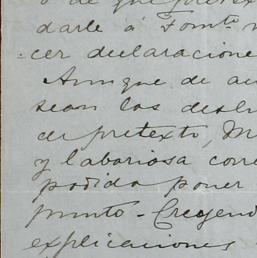 o de que pretex
darle á Fomto
cer declaracione
Aunque de au
sean las desl
de pretexto, M
y laboriosa corre
podido poner
punto - Creyend
explicaciones